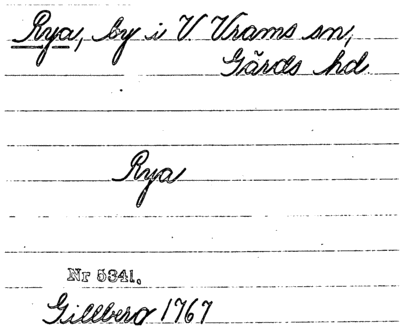 Rya, by i V. Vrams sn,
Gärds hd.
Rya
Nr 5341.
Gillberg 1767